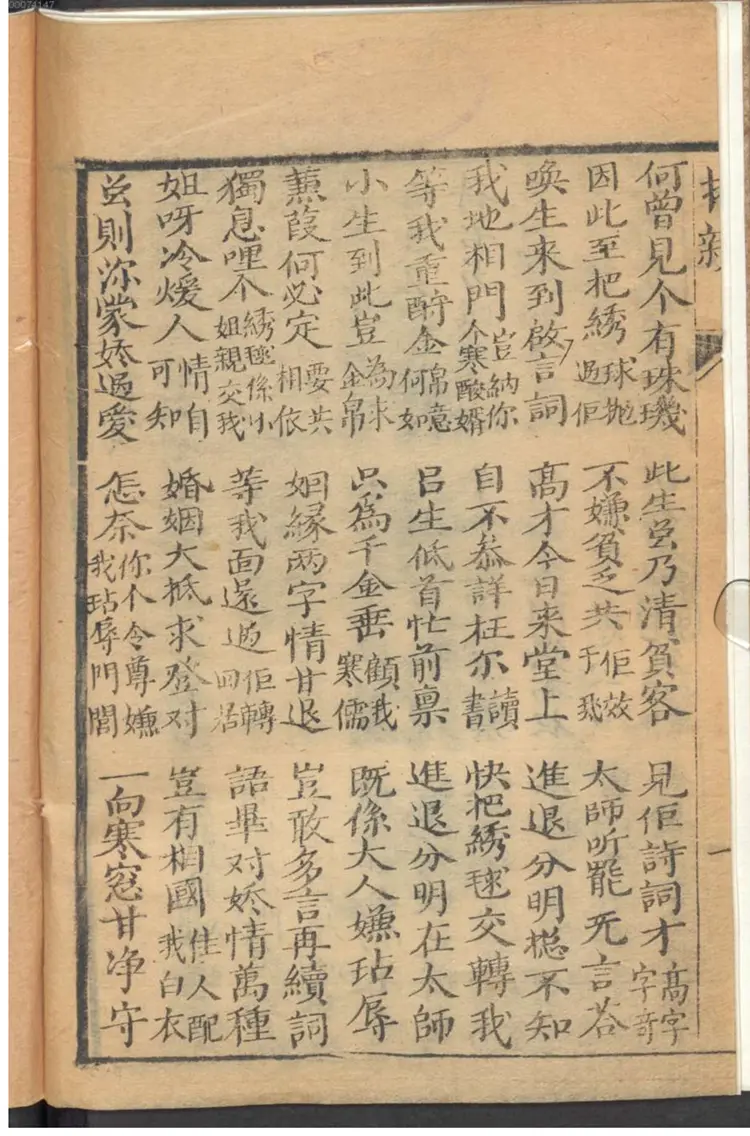 00074147
何曾見个有珠璣 此生虽乃清貧客 見佢詩詞才高字字奇
因此至把綉球拋過佢 不嫌貧乏共佢效于飛 太師听罷无言荅
喚生來到啟言詞 高才今日來堂上 進退分明揔不知
我地相門豈納你个寒酸婿 自不恭詳枉尔讀書 快把綉毬交轉我
等我重酧金帛意何如 吕生低首忙前禀 進退分明在太師
小生到此豈為求金帛 只為千金垂顧我寒儒 既係大人嫌玷辱
蒹葭何必定要共相依 姻緣两字情甘退 豈敢多言再續詞
獨息哩个綉毬係小姐親交我 等我面還過佢轉回居 語畢对娇情萬種
姐呀冷煖人情自可知 婚姻大抵求登对 豈有相國佳人配我白衣
虽則深蒙娇過愛 怎奈你个令尊嫌我玷辱門閭 一向寒窓甘净守